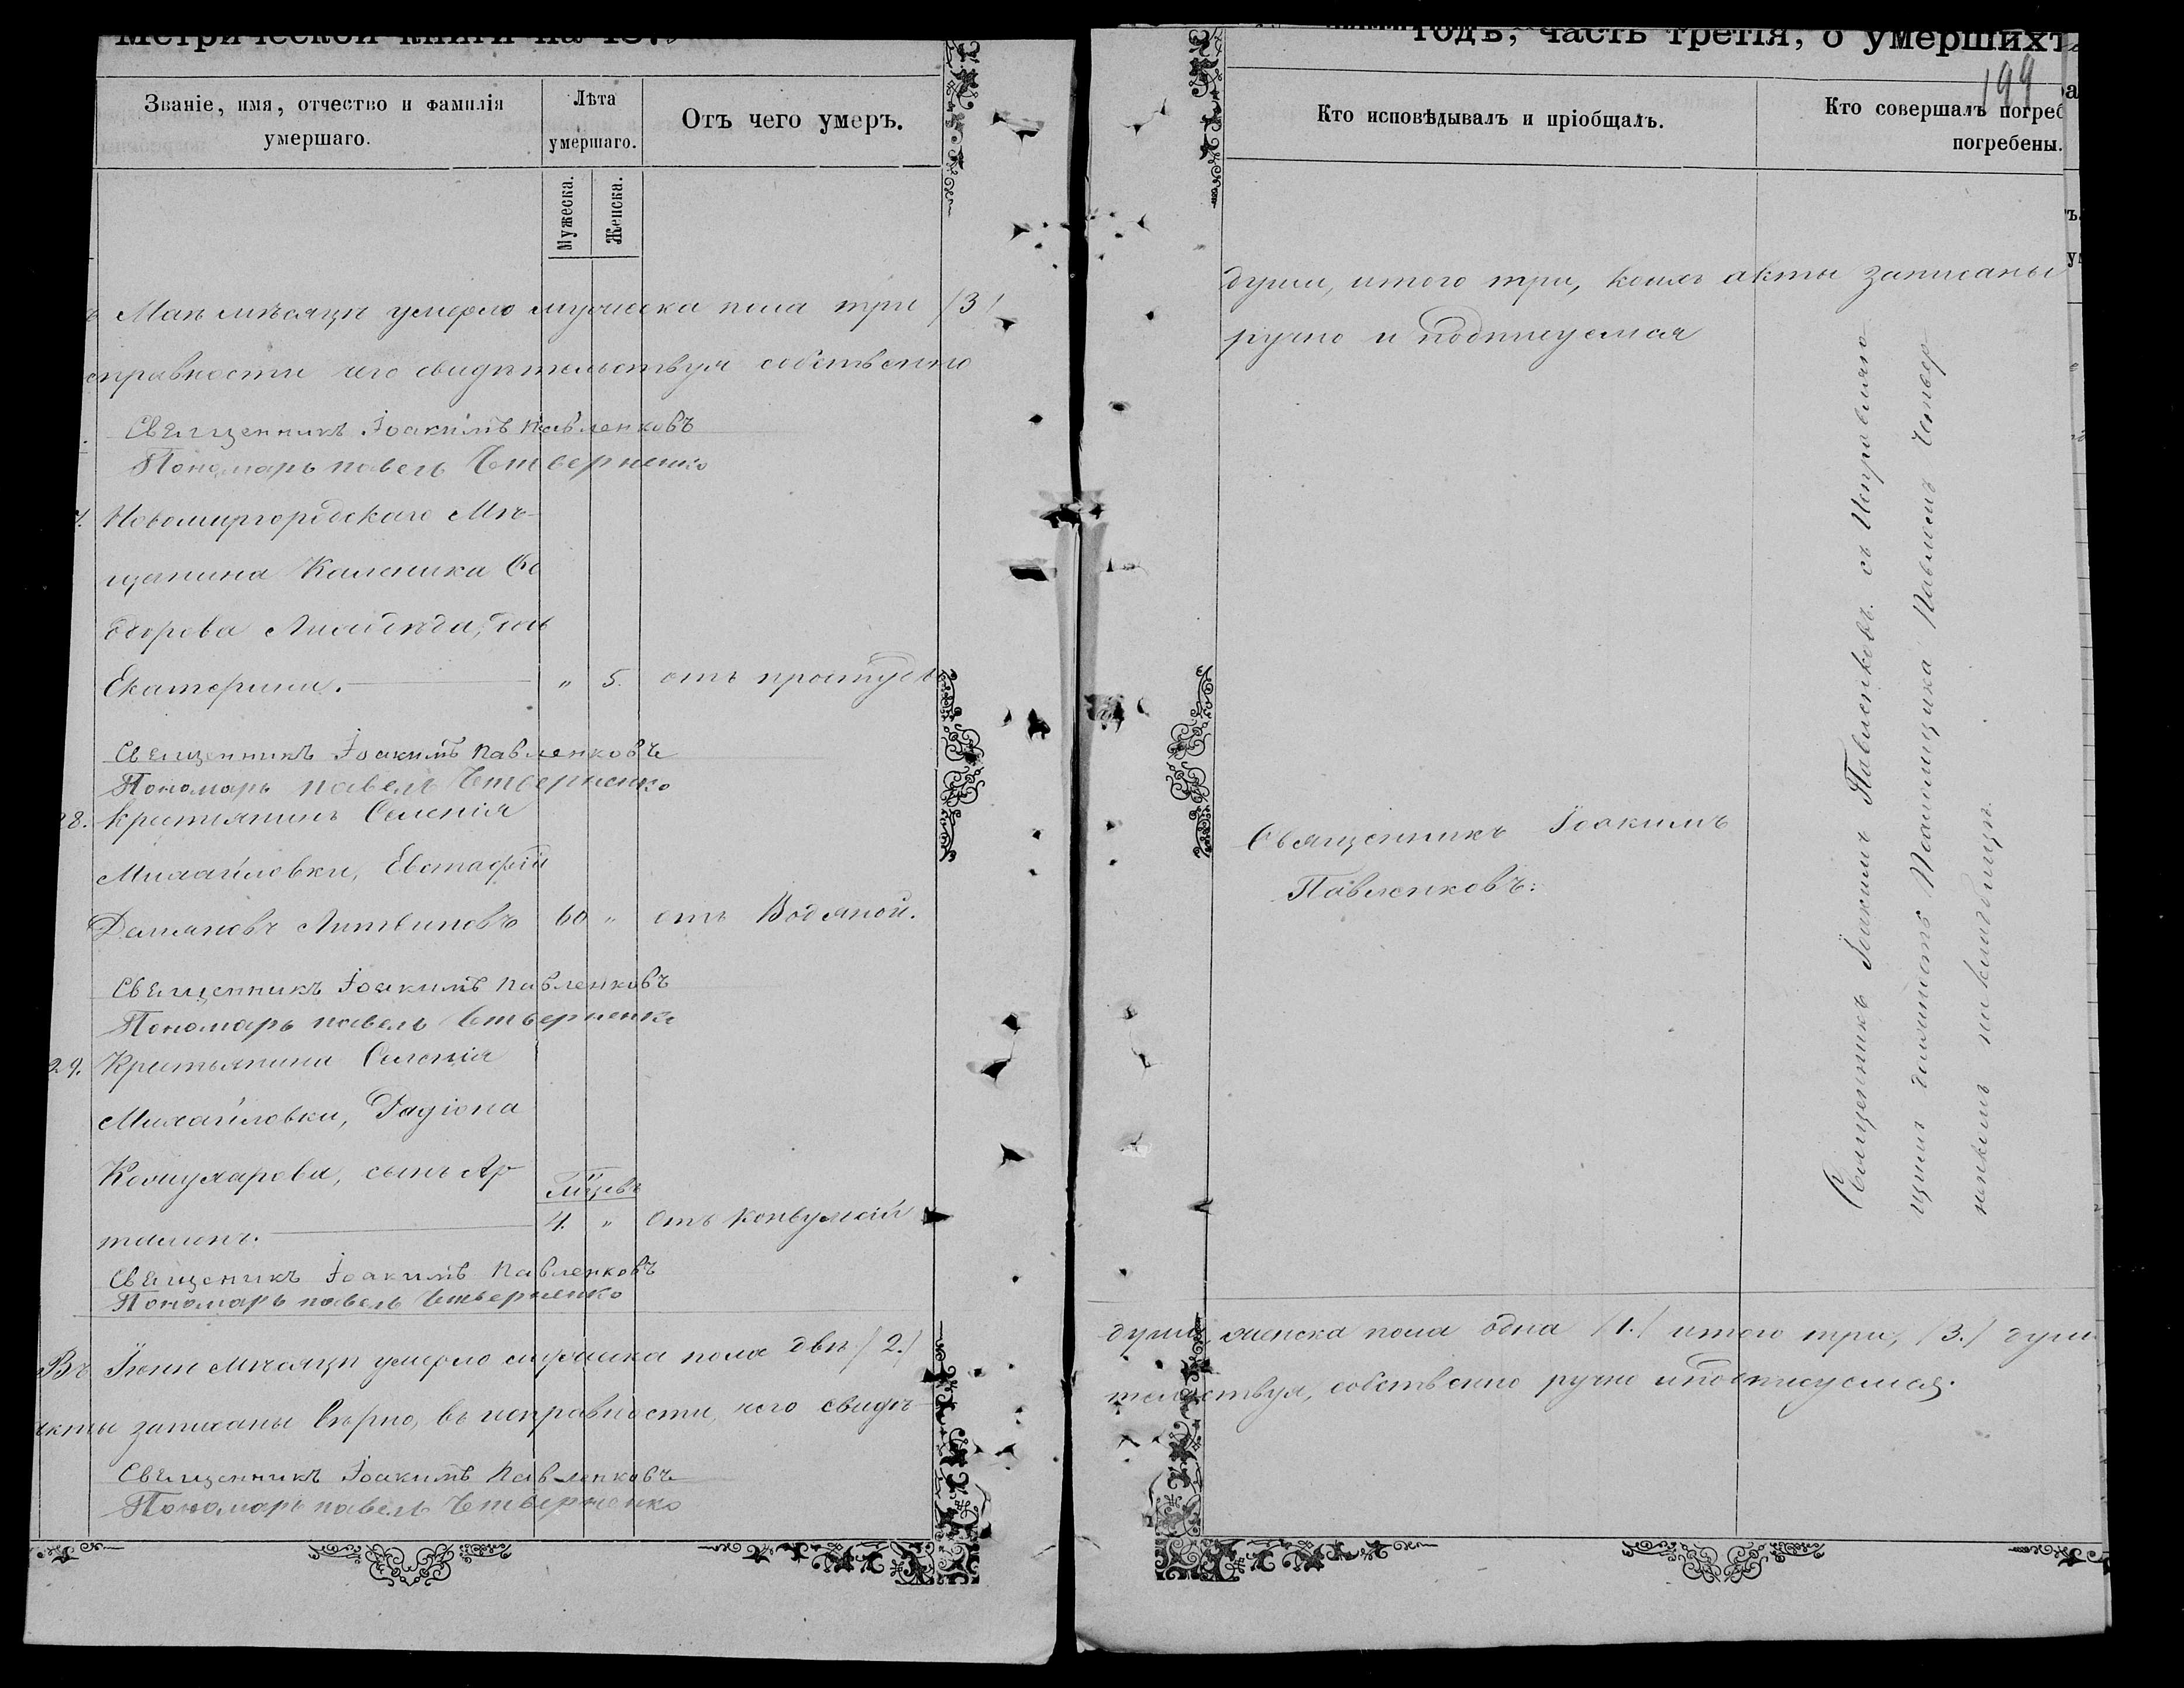 Метрической книги на 187
Званіе, имя, отчество и фамилія
умершаго.
Лѣта
умершаго.
Мужеска.
Женска.
Отъ чего умеръ.
Маѣ мѣсяцѣ умерло мужеска пола три /3/
справности чего свидѣтельствуя собственно
Священникъ Іоакимъ Павленковъ
Пономарь павелъ Четверненко
Новомиргородскаго Мѣ-
щанина Каленика Ѳе
одорова дочь
Екатерина. " 5. отъ простуды
Священникъ Іоакимъ Павленковъ
Пономарь павелъ Четверненко
28. Крестьянинъ Селенія
Михайловки, Евстафій
Демяновъ Литвиновъ 60 " отъ Водяной.
Священникъ Іоакимъ Павленковъ
Пономарь павелъ Четверненко
29. Крестьянина Селенія
Михайловки, Радіона
Кошухарова, сынъ Ар
тамонъ. мцевъ 4. " Отъ конвульсій
Священикъ Іоакимъ Павленковъ
Пономарь павелъ Четверненко
Въ Іюнѣ мѣсяцѣ умерло мужеска пола двѣ /2./
акты записаны вѣрно, въ исправности, чего свидѣ-
Священникъ Іоакимъ Павленковъ
Пономарь павелъ Четверненко
годъ, часть третія, о умершихъ
199
Кто исповѣдывалъ и пріобщалъ.
Кто совершалъ погреб
погребены.
души, итого три, коихъ акты записаны
ручно и подписуемся
Священникъ Іоакимъ
Павленковъ:
Священникъ Іоакимъ Павленковъ съ Исправляю
щимъ должность Псаломщика Павломъ Четвер
ненкомъ на кладбищѣ.
душа женска пола одна /1./ итого три, /3./ душ
тельствуя, собственно ручно иподписуемся.